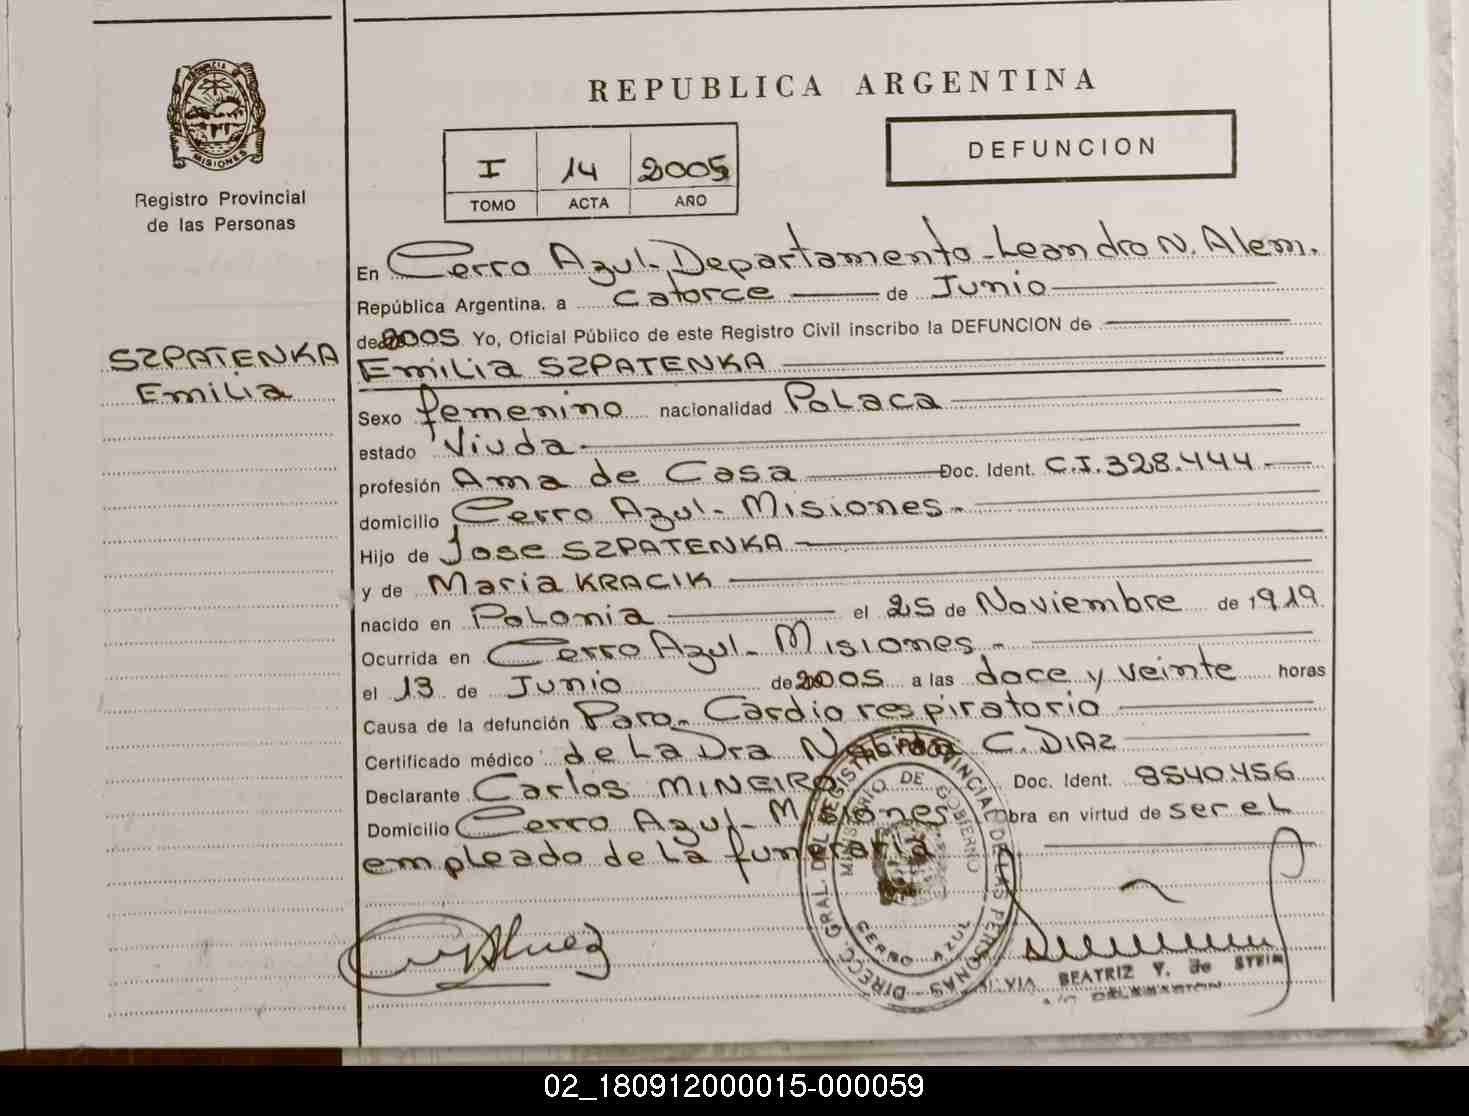 REPUBLICA ARGENTINA
MISIONES
Registro Provincial
de las Personas
I 14 2005
TOMO ACTA AÑO
DEFUNCION
SZPATENKA
Emilia
En Cerro Azul-Departamento-Leandro N. Alem.
República Argentina, a catorce de Junio
de 2005 Yo, Oficial Público de este Registro Civil inscribo la DEFUNCION de
Emilia SZPATENKA
Sexo femenino nacionalidad Polaca
estado Viuda-
profesión Ama de Casa Doc. Ident. C.I.328.444.
domicilio Cerro Azul- Misiones-
Hijo de Jose SZPATENKA
y de Maria KRACIK
nacido en Polonia el 25 de Noviembre de 1919
Ocurrida en Cerro Azul- Misiones-
el 13 de Junio de 2005 a las doce y veinte horas
Causa de la defunción Paro- Cardio respiratorio
Certificado médico de La Dra C. DIAZ
Declarante Carlos MINEIRO Doc. Ident. 8540.456
Domicilio Cerro Azul- Misiones Obra en virtud de ser eL
empleado de La funeraria
DIRECC. GRAL. DEL REGISTRO PROVINCIAL DE LAS PERSONAS
MINISTERIO DE GOBIERNO
CERRO AZUL
BEATRIZ Y. de STEIN
02_180912000015-000059